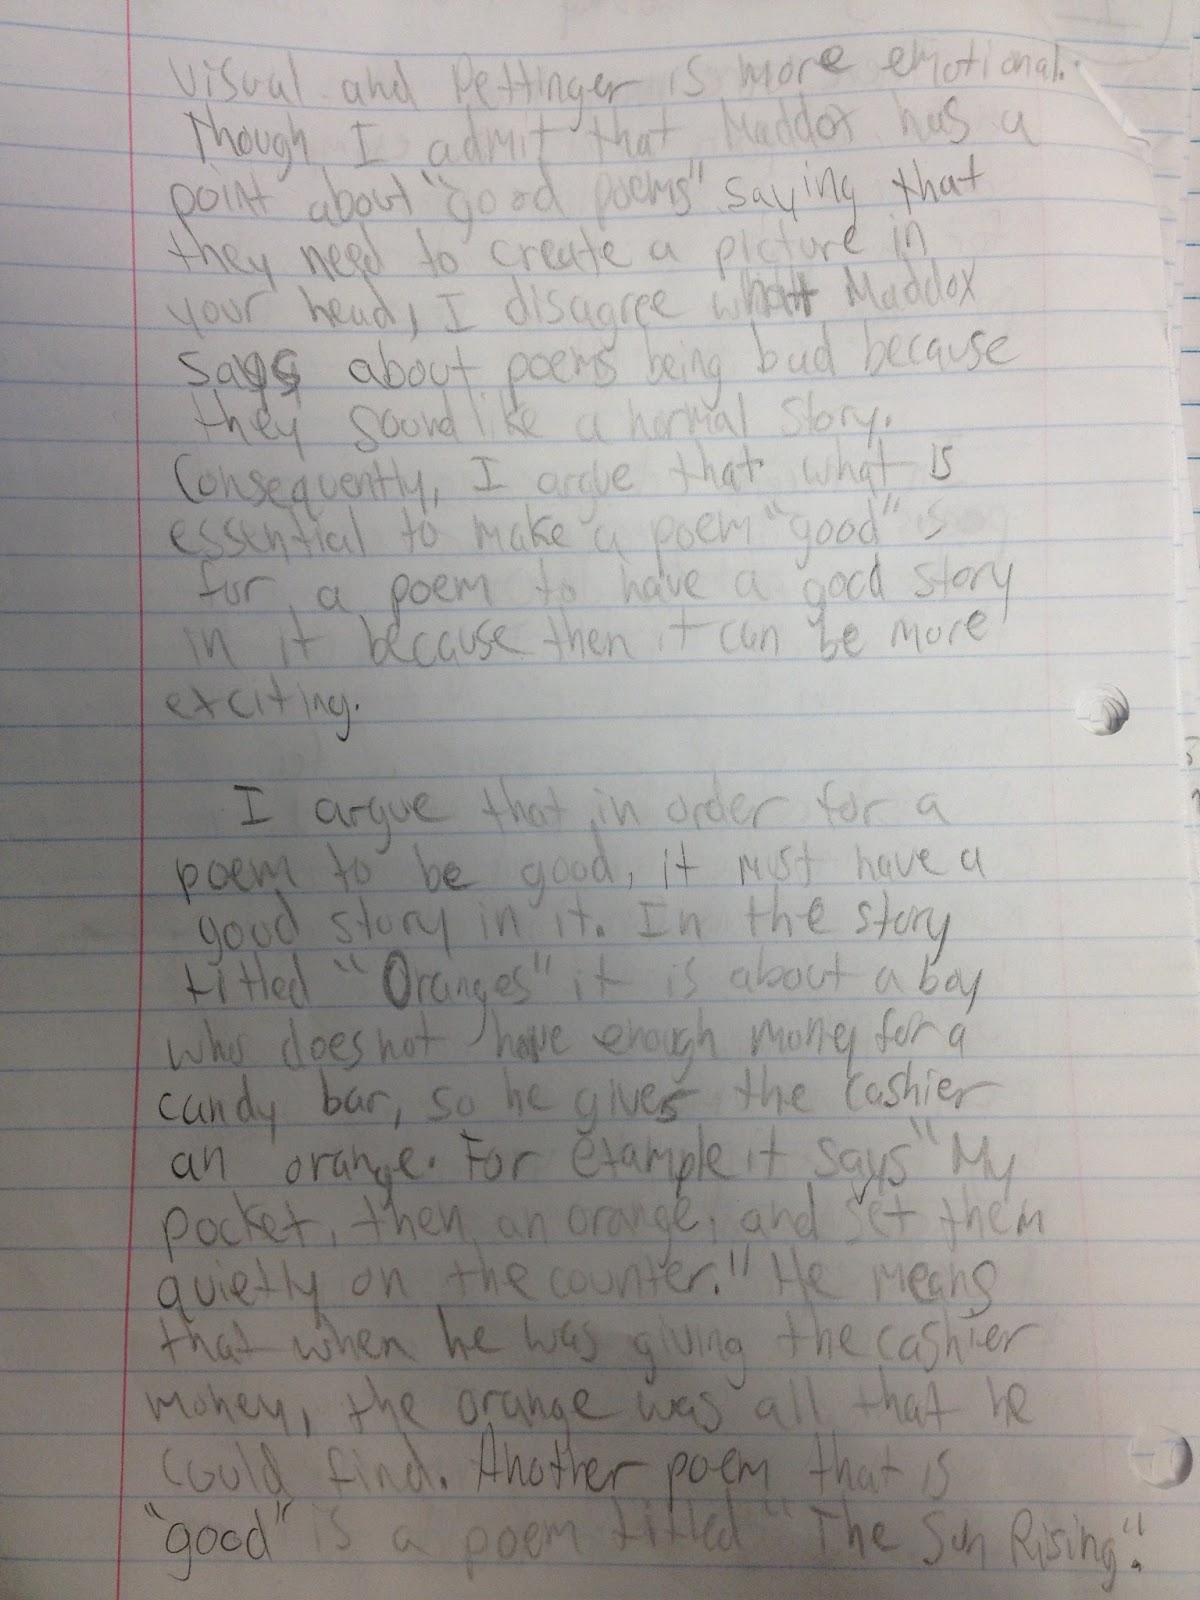 visual and Pettinger is more emotional.
Though I admit that Maddox has a
point about "good poems" saying that
they need to create a picture in
your head, I disagree what Maddox
says about poems being bad because
they sound like a normal story.
Consequently, I argue that what is
essential to make a poem "good" is
for a poem to have a good story
in it because then it can be more
exciting.
I argue that in order for a
poem to be good, it must have a
good story in it. In the story
titled "Oranges" it is about a boy
who does not have enough money for a
candy bar, so he gives the cashier
an orange. For example it says "My
pocket, then an orange, and set them
quietly on the counter." He means
that when he was giving the cashier
money, the orange was all that he
could find. Another poem that is
"good" is a poem titled "The Sun Rising".